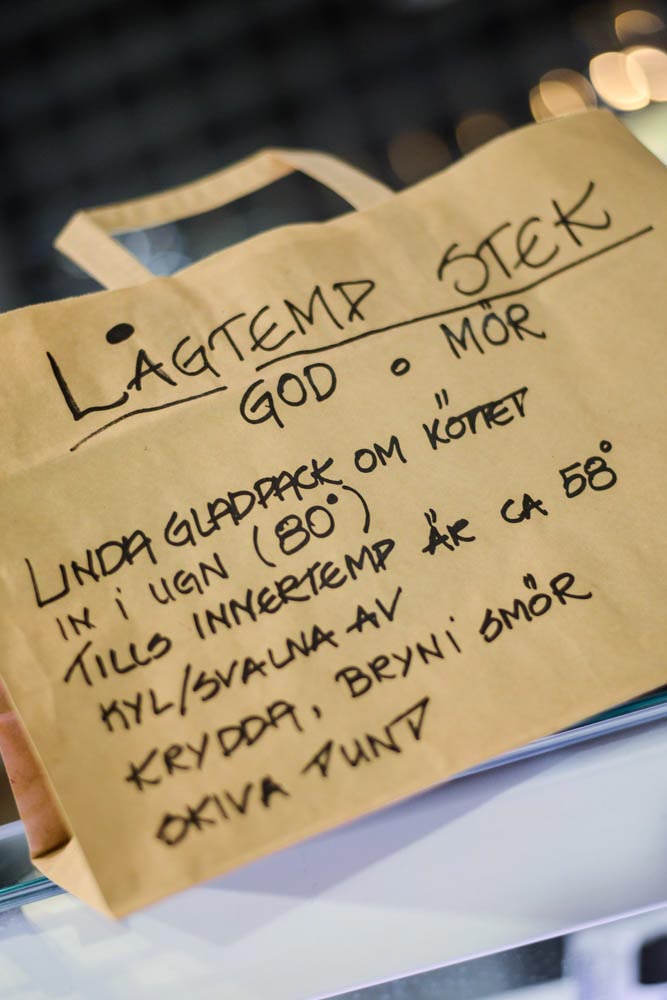 LÅGTEMP STEK
GOD • MÖR
LINDA GLADPACK OM KÖTTET
IN i UGN (80°)
TILLS INNERTEMP ÄR CA 58°
KYL/SVALNA AV
KRYDDA, BRYN i SMÖR
SKIVA TUNT